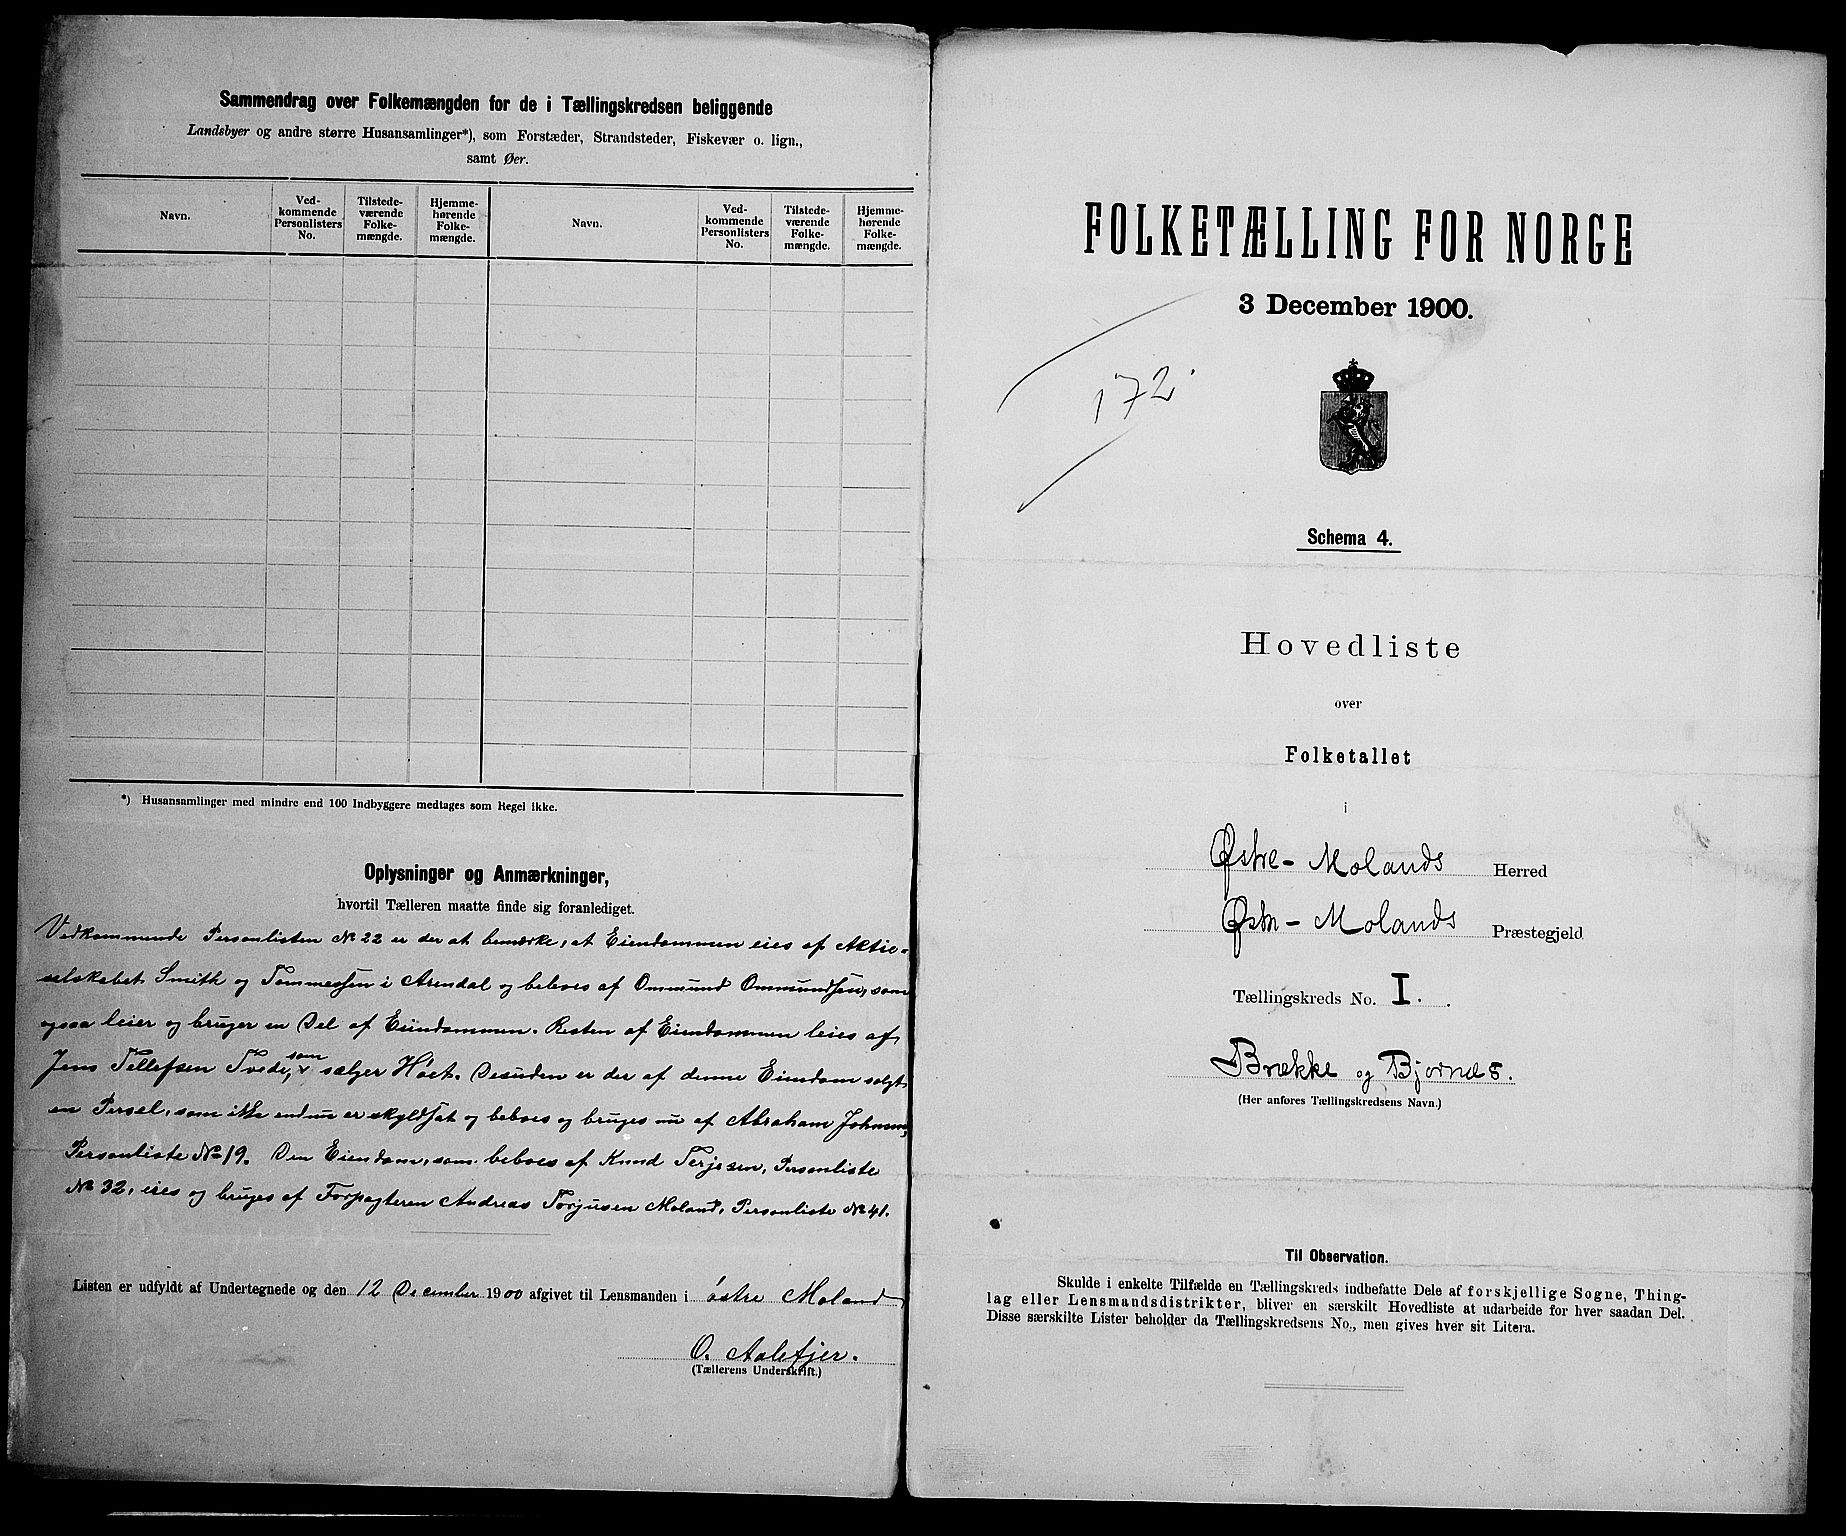 Sammendrag over Folkemængden for de i Tællingskredsen beliggende
Landsbyer og andre større Husansamlinger*), som Forstæder, Strandsteder, Fiskevær o. lign.,
samt Øer.
Navn.
Ved-
kommende
Personlisters
No.
Tilstede-
værende
Folke-
mængde.
Hjemme-
hørende
Folke-
mængde.
Navn.
Ved-
kommende
Personlisters
No.
Tilstede-
værende
Folke-
mængde.
Hjemme-
hørende
Folke-
mængde.
*) Husansamlinger med mindre end 100 Indbyggere medtages som Regel ikke.
Oplysninger og Anmærkninger,
hvortil Tælleren maatte finde sig foranlediget.
Vedkommende Personlisten No 22 er der at bemærke, at Eiendommen eies af Aktie-
selskabet Smith og Tommessen i Arendal og beboes af Ommund Ommundsen, som
ogsaa leier og bruger en Del af Eiendommen. Resten af Eiendommen leies af
Jens Tellefsen Tvede, som sælger Høet. Desuden er der af denne Eiendom solgt
en Parsel, som ikke endnu er skyldsat og beboes og bruges nu af Abraham Johnsen,
Personliste No 19. Den Eiendom, som beboes af Knud Terjesen, Personliste
No 32, eies og bruges af Forpagteren Andreas Torjusen Moland, Personliste No 41.
Listen er udfyldt af Undertegnede og den 12 December 1900 afgivet til Lensmanden i østre Moland
O. Aalefjer.
(Tællerens Underskrift.)
FOLKETÆLLING FOR NORGE
3 December 1900.
172
Schema 4.
Hovedliste
over
Folketallet
i
Østre-Molands Herred
Østre-Molands Præstegjeld
Tællingskreds No. I.
Brække og Bjornes.
(Her anføres Tællingskredsens Navn.)
Til Observation.
Skulde i enkelte Tilfælde en Tællingskreds indbefatte Dele af forskjellige Sogne, Thing-
lag eller Lensmandsdistrikter, bliver en særskilt Hovedliste at udarbeide for hver saadan Del.
Disse særskilte Lister beholder da Tællingskredsens No., men gives hver sit Litera.